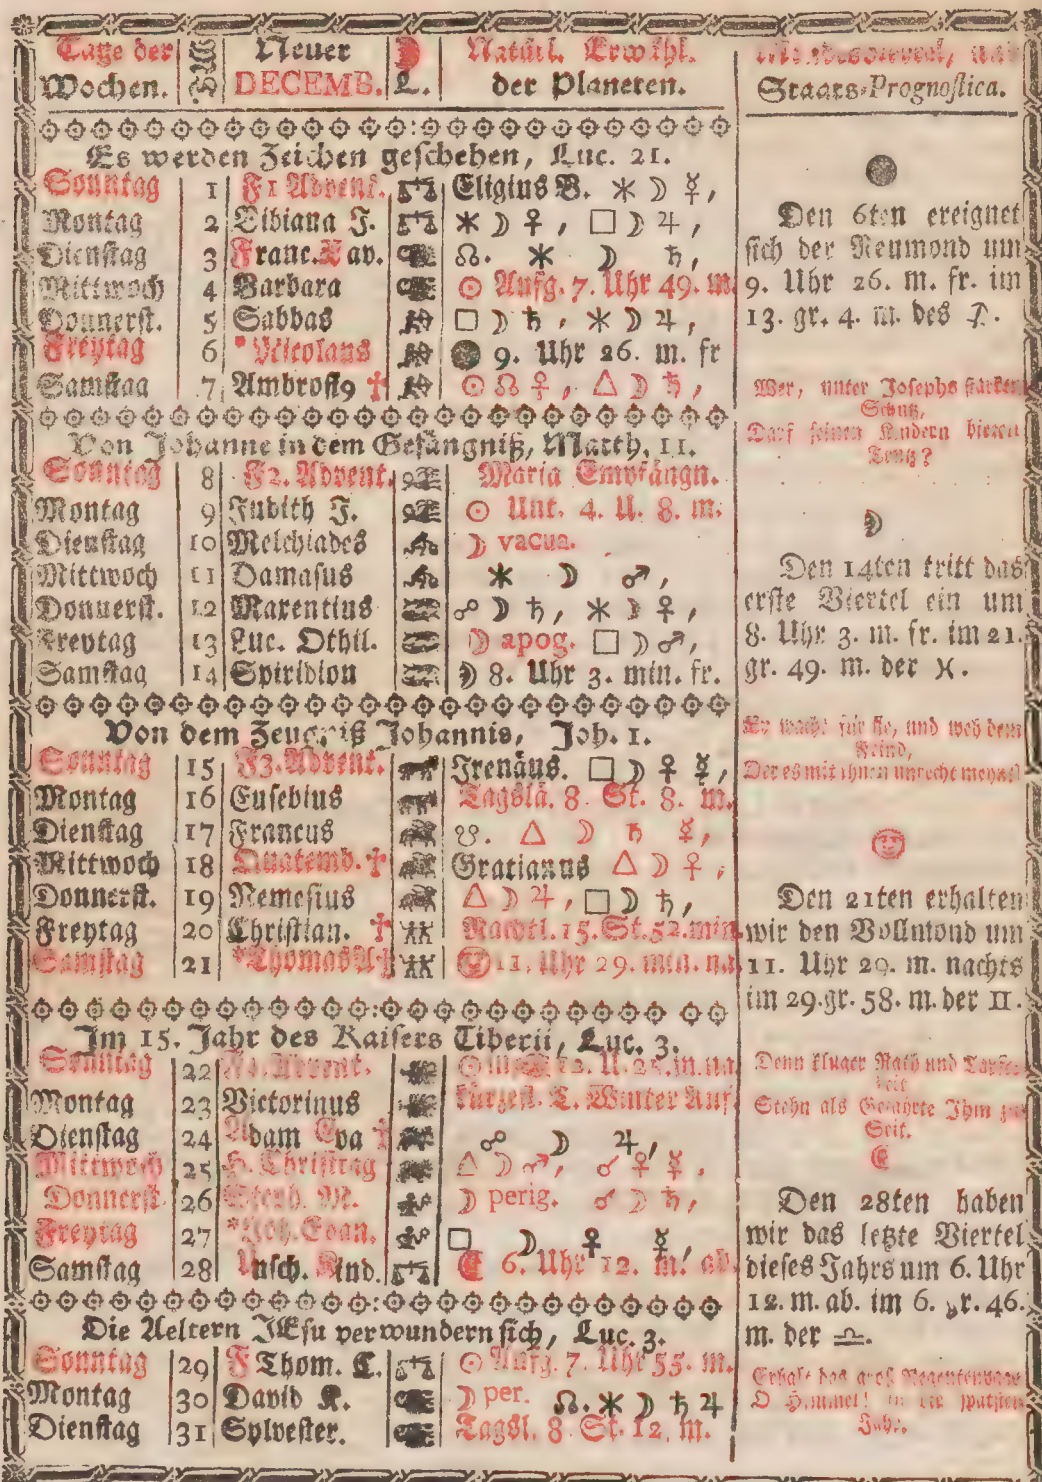 Tage der
Wochen.
Neuer
DECEMB.
L.
Natürl. Erwähl.
der Planeten.
Es werden Zeichen geschehen, Luc. 21.
Sonntag 1 F1 Advent. Eligius B. ⚹ ☽ ☿,
Montag 2 Bibiana J. ⚹ ☽ ♀, □ ☽ ♃,
Dienstag 3 Franc. Xav. ☊. ⚹ ☽ ♄,
Mittwoch 4 Barbara ☉ Aufg. 7. Uhr 49. m.
Donnerst. 5 Sabbas □ ☽ ♄, ⚹ ☽ ♃,
Freytag 6 *Nicolaus ● 9. Uhr 26. m. fr
Samstag 7 Ambrosi9 † ☉ ☊ ♀, △ ☽ ♄,
Von Johanne in dem Gefängniß, Matth. 11.
Sonntag 8 F2. Advent. Maria Empfängn.
Montag 9 Judith J. ☉ Unt. 4. U. 8. m.
Dienstag 10 Melchiades ☽ vacua.
Mittwoch 11 Damasus ⚹ ☽ ♂,
Donnerst. 12 Maxentius ☍ ☽ ♄, ⚹ ☽ ♀,
Freytag 13 Luc. Othil. ☽ apog. □ ☽ ♂,
Samstag 14 Spiridion ☽ 8. Uhr 3. min. fr.
Von dem Zeugniß Johannis, Joh. 1.
Sonntag 15 F3. Advent. Irenäus. □ ☽ ♀ ☿,
Montag 16 Eusebius Tagslä. 8. St. 8. m.
Dienstag 17 Francus ☋. △ ☽ ♄ ☿,
Mittwoch 18 Quatemb. † Gratianus △ ☽ ♀,
Donnerst. 19 Nemesius △ ☽ ♃, □ ☽ ♄,
Freytag 20 Christian. † Nachtl. 15. St. 52. min.
Samstag 21 *Thomas A † 11. Uhr 29. min. na
Im 15. Jahr des Kaisers Tiberii, Luc. 3.
Sonntag 22 Advent. ☉
Montag 23 Victorinus kürzest. T. Winter Anf.
Dienstag 24 Adam Eva † ☍ ☽ ♃,
Mittwoch 25 H. Christtag △ ☽ ♂, ☌ ♀ ☿.
Donnerst. 26 Steph. M. ☽ perig. ☌ ☽ ♄,
Freytag 27 *Joh. Evan. □ ☽ ♀ ☿,
Samstag 28 Unsch. Kind. ☾ 6. Uhr 12. m. ab.
Die Aeltern JEsu verwundern sich, Luc. 3.
Sonntag 29 F Thom. C. ☉ Aufg. 7. Uhr 55. m.
Montag 30 David K. ☽ per. ☊. ⚹ ☽ ♄ ♃
Dienstag 31 Sylvester. Tagsl. 8. St. 12. m.
Staats-Prognostica.
Den 6ten ereignet
sich der Neumond um
9. Uhr 26. m. fr. im
13. gr. 4. m. des ♐.
Wer, unter Josephs starken
Schutz,
Darf seinen Kindern bieten
Trutz?
Den 14ten tritt das
erste Viertel ein um
8. Uhr 3. m. fr. im 21.
gr. 49. m. der ♓.
Er wacht für sie, und weh dem
Feind,
Der es mit ihnen unrecht meynet!
Den 21ten erhalten
wir den Vollmond um
11. Uhr 29. m. nachts
im 29. gr. 58. m. der II.
Denn kluger Rath und Tapfer-
keit
Stehn als Gefährte Ihm zur
Seit.
Den 28ten haben
wir das letzte Viertel
dieses Jahrs um 6. Uhr
12. m. ab. im 6. gr. 46.
m. der ♎.
Erhalt das groß
O Himmel! in die spatsten
Jahr.